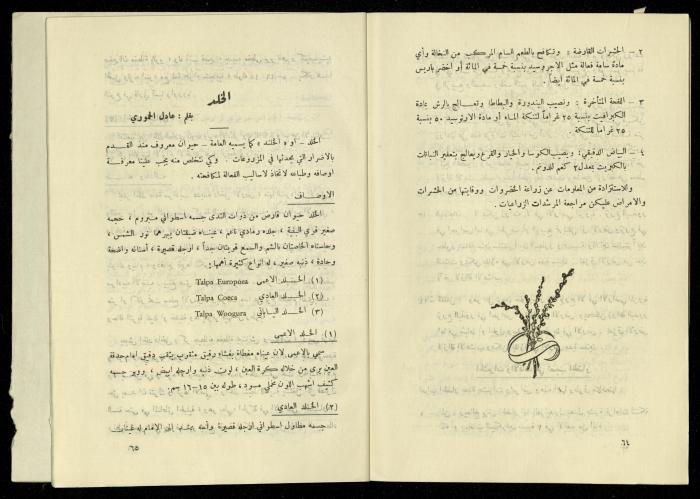 ٢ - الحشرات القارضة : وتكافح بالطعم السام المركب من النخالة وأي
مادة سامة فعالة مثل الاجروسيد بنسبة خمسة في المائة أو اخضر باريس
بنسبة خمسة في المائة أيضاً .
٣ - اللفحة المتأخرة : وتصيب البندورة والبطاطا وتعالج بالرش بمادة
الكبرافيت بنسبة ٢٥ غراماً لتنكة الماء أو مادة الارثوسيد ٥٠ بنسبة
٢٥ غراماً للتنكة .
٤ - البياض الدقيقي : ويصيب الكوسا والخيار والقرع ويعالج بتعفير النباتات
بالكبريت بمعدل ٢ كغم للدونم .
وللاستزادة من المعلومات عن زراعة الخضروات ووقايتها من الحشرات
والامراض عليكن مراجعة المرشدات الزراعيات .
٦٤
الخلد
بقلم : عادل الجموري
الخلد - او « الخلند » كما يسميه العامة - حيوان معروف منذ القدم
بالاضرار التي يحدثها في المزروعات . وكي نتخلص منه يجب علينا معرفة
اوصافه وطباعه لاتخاذ الاساليب الفعالة لمكافحته .
الاوصاف
الخلد حيوان قارض من ذوات الثدي جسمه اسطواني مبروم ، حجمه
صغير قوي البنية ، جلده رمادي ناعم ، عيناه ضيقتان يبهرهما نور الشمس ،
وحاستاه الخاصتان بالشم والسمع قويتان جداً ، ارجله قصيرة ، أسنانه واضحة
وحادة ، ذنبه صغير ، له انواع كثيرة أهمها :
(١) الخلد الاعمى Talpa Europoea
(٢) الخلد العادي Talpa Coeca
(٣) الخلد الياباني Talpa Woogura
(١) الخلد الاعمى
سمي بالاعمى لان عيناه مغطاة بغشاء رقيق مثقوب بثقب دقيق امام حدقة
العين يرى من خلاله كرة العين ، لون ذنبه وارجله ابيض ، ووبر جسمه
كثيف اشهب اللون مخملي مسود ، طوله بين ١٥-١٦ سم .
(٢) الخلد العادي
جسمه متطاول اسطواني ارجله قصيرة وأحد يشبه إلى الافام له عينان
٦٥